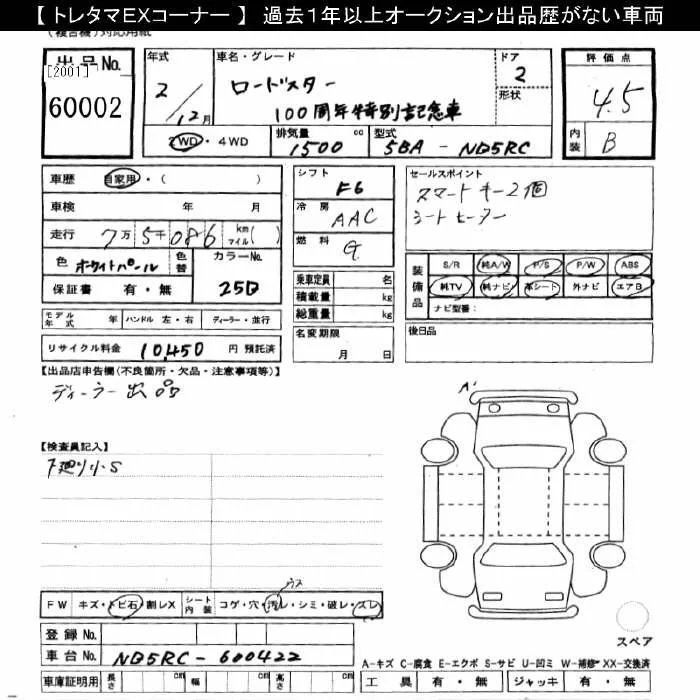 【 トレタマEXコーナー 】 過去１年以上オークション出品歴がない車両
(複合機)対応用紙
出品No.
[2001]
60002
年式
2/12月
車名・グレード
ロードスター
100周年特別記念車
ドア
2
形状
2WD・4WD
排気量 1500 cc
型式 5BA - ND5RC
評価点
4.5
内装 B
車歴 自家用・( )
車検 年 月
走行 7万5千086 km マイル( )
色 ホワイトパール 色替 カラーNo. 25D
保証書 有・無
モデル年式 年 ハンドル 左・右 ディーラー・並行
リサイクル料金 10,450 円 預託済
シフト F6
冷房 AAC
燃料 G
乗車定員 名
積載量 kg
総重量 kg
名変期限
月 日
セールスポイント
スマートキー2個
シートヒーター
装備品
S/R 純A/W P/S P/W ABS
純TV 純ナビ 革シート 外ナビ エアB
ナビ型番:
後日品
【出品店申告欄(不良箇所・欠品・注意事項等)】
ディーラー出品
A1
【検査員記入】
下廻り小S
FW キズ・トビ石・割レX シート内装 コゲ・穴・汚レ・シミ・破レ・スレ
登録 No.
車台 No. ND5RC-600422
車庫証明用 長さ cm 幅 cm 高さ cm
スペア
A-キズ C-腐食 E-エクボ S-サビ U-凹ミ W-補修 XX-交換済
工具 有・無 ジャッキ 有・無